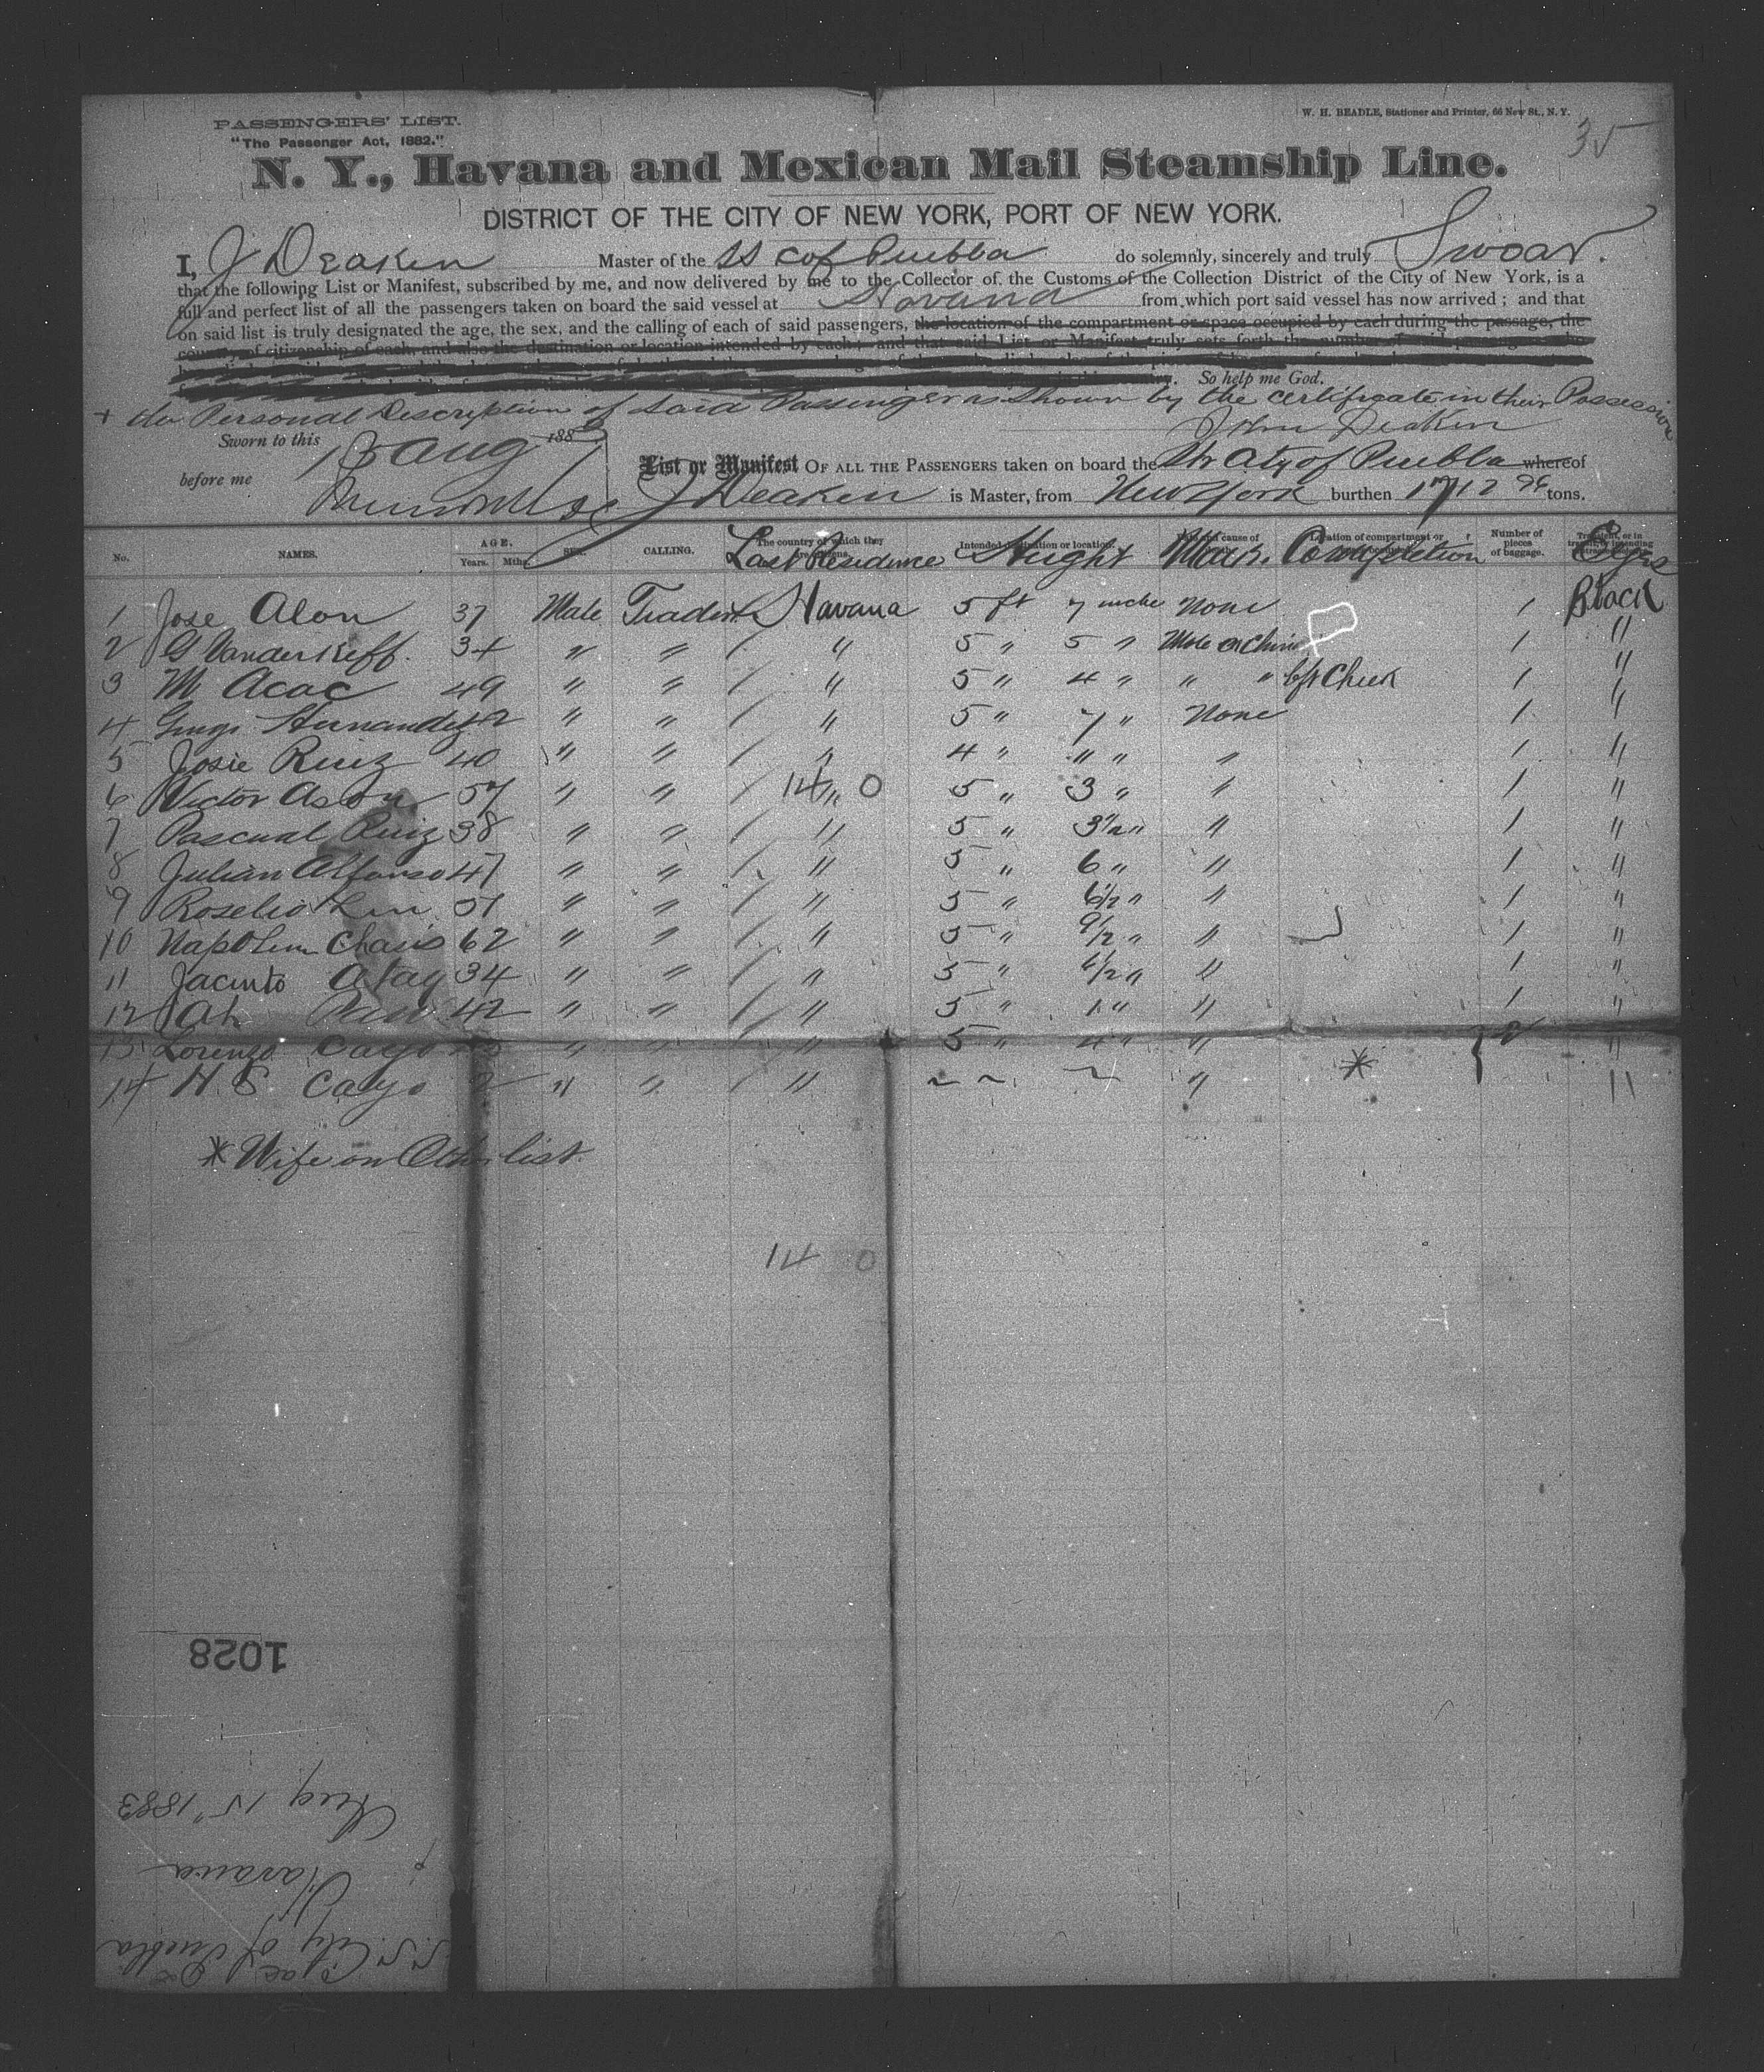 PASSENGERS' LIST.
"The Passenger Act, 1882."
W. H. BEADLE, Stationer and Printer, 66 New St., N. Y.
35
N. Y., Havana and Mexican Mail Steamship Line.
DISTRICT OF THE CITY OF NEW YORK, PORT OF NEW YORK.
I, J Deaken Master of the SS C of Puebla do solemnly, sincerely and truly Swear.
that the following List or Manifest, subscribed by me, and now delivered by me to the Collector of the Customs of the Collection District of the City of New York, is a
full and perfect list of all the passengers taken on board the said vessel at Havana from which port said vessel has now arrived; and that
on said list is truly designated the age, the sex, and the calling of each of said passengers, the location of the compartment or space occupied by each during the passage, the
country of citizenship of each, and also the destination or location intended by each; and that said List or Manifest truly sets forth the number of said passengers who
So help me God.
+ the Personal Description of Said Passenger as Shown by the certificate in their Possession
Sworn to this 15 Aug 1883
John Deaken
before me
List or Manifest OF ALL THE PASSENGERS taken on board the Str City of Puebla whereof
J Deaken is Master, from New York burthen 1712 96 tons.
No. NAMES. AGE. Years. Mths. SEX. CALLING. The country of which they are citizens. Last Residence Intended destination or location. Height Mark. Location of compartment or Complection Number of pieces of baggage. Eyes
1 Jose Alon 37 Male Trader Havana 5 ft 7 inche None 1 Black
2 G Vanderkeff. 34 " " " 5 " 5 " Mole on Chin 1 "
3 M Acac 49 " " " 5 " 4 " " " left Cheek 1 "
4 Hernandez 42 " " " 5 " 7 " None 1 "
5 Josie Ruiz 40 " " " 4 " 11 " " 1 "
6 Victor Ason 57 " " 14 " 0 5 " 3 " " 1 "
7 Pascual Ruiz 38 " " " 5 " 3½ " " 1 "
8 Julian Alfonso 47 " " " 5 " 6 " " 1 "
9 Roselio Lin 51 " " " 5 " 6½ " " 1 "
10 Napoleon Chais 62 " " " 5 " 9½ " " 1 "
11 Jacinto Atay 34 " " " 5 " 6½ " " 1 "
12 Ah 42 " " " 5 " 1 " " 1 "
13 Lorenzo Cayo " " " 5 " 4 " " "
14 H. S. Cayo 2 " " " ~ ~ ~ " * "
* Wife on Other list.
14 0
1028
Aug 15" 1883
Havana
S.S. City of Puebla